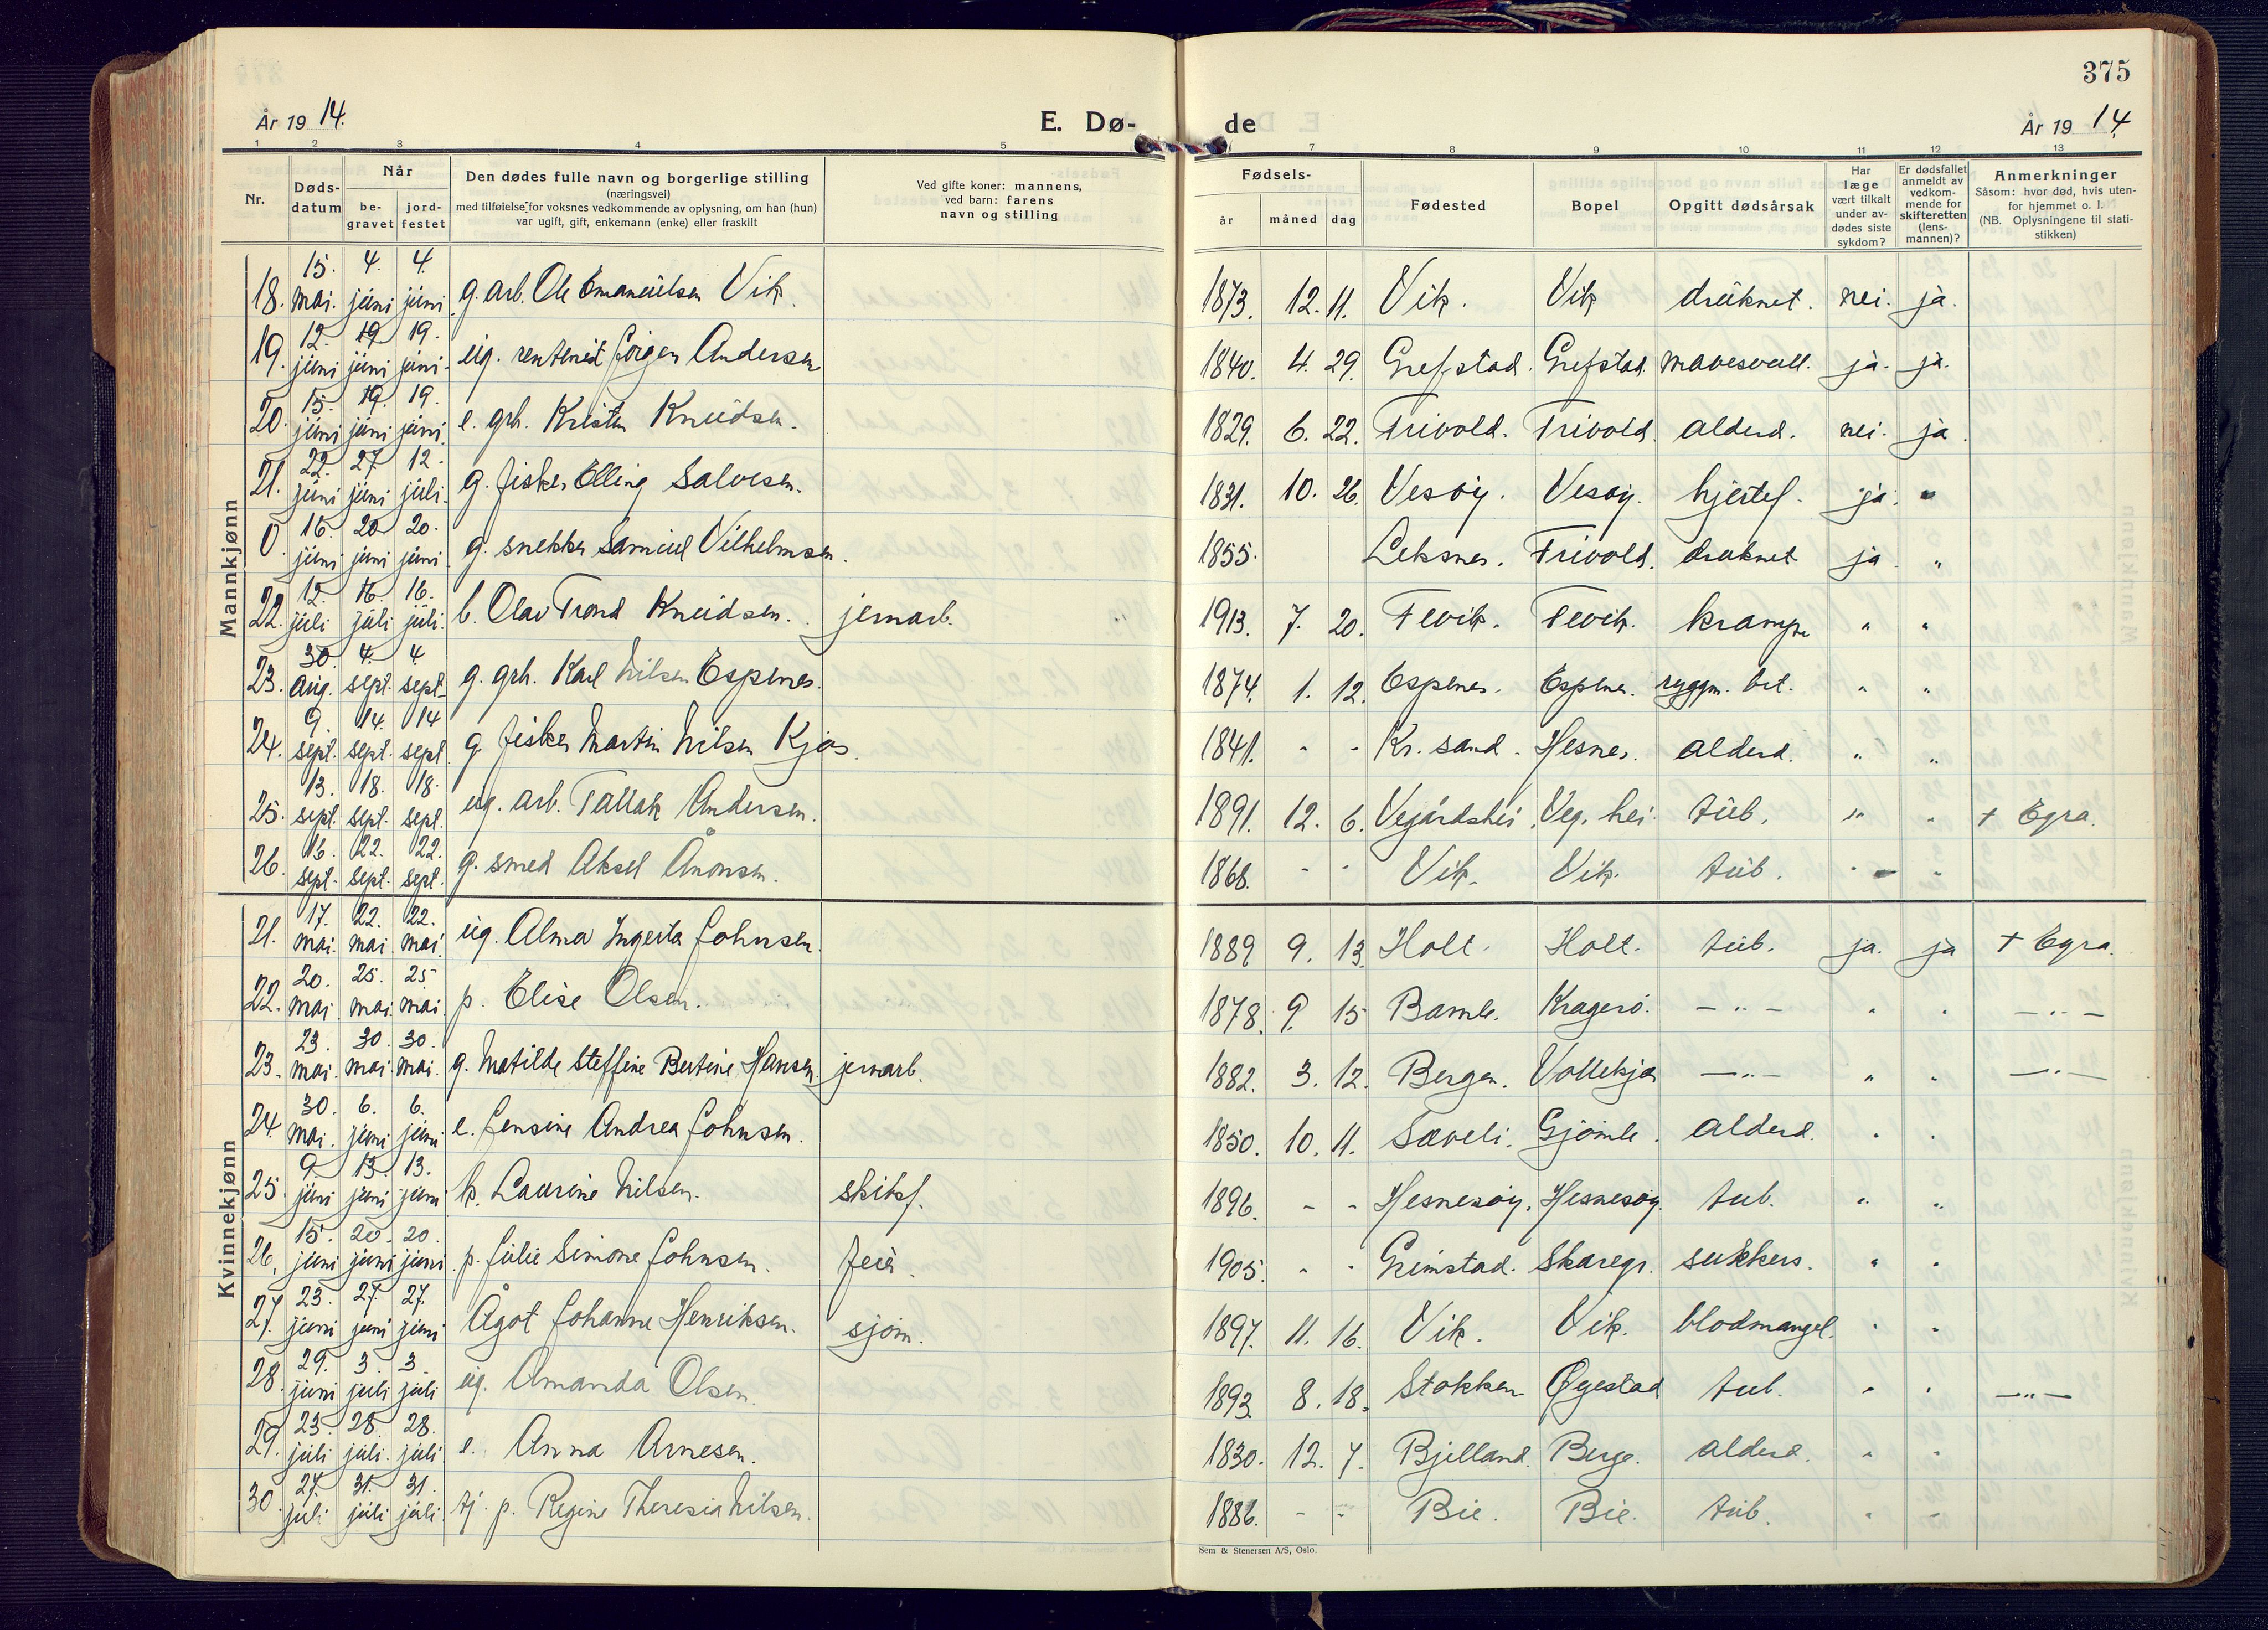 375
År 1914.
E. Dø-
de
År 1914
1 2 3 4 5 7 8 9 10 11 12 13
Nr.
Døds-
datum
Når
be-
gravet
jord-
festet
Den dødes fulle navn og borgerlige stilling
(næringsvei)
med tilføielse for voksnes vedkommende av oplysning, om han (hun)
var ugift, gift, enkemann (enke) eller fraskilt
Ved gifte koner: mannens,
ved barn: farens
navn og stilling
Fødsels-
år måned dag
Fødested
Bopel
Opgitt dødsårsak
Har
læge
vært tilkalt
under av-
dødes siste
sykdom?
Er dødsfallet
anmeldt av
vedkom-
mende for
skifteretten
(lens-
mannen)?
Anmerkninger
Såsom: hvor død, hvis uten-
for hjemmet o. l.
(NB. Oplysningene til stati-
stikken)
Mannkjønn
18. 15. mai. 4. juni 4. juni g. arb. Ole Emanuelsen Vik. 1873. 12. 11. Vik. Vik druknet. nei. ja.
19. 12. juni 19 juni 19. juni. ug. rentenist Jörgen Andersen 1840. 4. 29. Grefstad. Grefstad. mavesvull. ja. ja.
20. 15. juni 19. juni 19. juni. e. grb. Kristen Knudsen. 1829. 6. 22. Trivold. Trivold. alderd. nei. ja.
21. 22. juni 27. juni 12. juli. g. fisker Elling Salvesen. 1831. 10. 26. Vesöy. Vesöy. hjertef. ja. "
0. 16. juni 20 juni 20. juni. g. snekker Samuel Vilhelmsen. 1855. Leksnes. Trivold. druknet ja "
22. 12. juli 16. juli 16. juli. b. Olav Trond Knudsen. jernarb. 1913. 7. 20. Fevik. Fevik. krampe " "
23. 30. aug. 4. sept. 4. sept. g. grb. Karl Nilsen Espenes. 1874. 1. 12. Espenes. Espenes. ryggm. bet. " "
24. 9. sept. 14. sept. 14 sept. g. fisker Martin Nilsen Kjos. 1841. - - Kr. sand. Hesnes. alderd. " "
25. 13. sept. 18. sept. 18. sept. ug. arb. Tallak Andersen. 1891. 12. 6. Vegårdshei. Veg. hei. tub. " " + Egra.
26. 16. sept. 22. sept. 22. sept. g. smed Aksel Ånonsen. 1868. - - Vik. Vik. tub. " "
Kvinnekjønn
21. 17. mai. 22. mai 22. mai. ug. Alma Ingerta Johnsen. 1889 9. 13. Holt. Holt. tub. ja. ja + Egra.
22. 20. mai 25. mai. 25. mai. p. Elise Olsen. 1878. 9. 15 Bamle. Kragerö. - " - " " - " -
23. 23. mai. 30. mai. 30. mai. g. Matilde Steffine Bertine Hansen. jernarb. 1882. 3. 12. Bergen. Vollekjær - " - " " - " -
24. 30. mai. 6. juni 6. juni e. Jensine Andrea Johnsen. 1850. 10. 11. Saveli. Gjömle. alderd. " "
25. 9. juni 13 juni 13. juni k. Laurine Nilsen. skibsf. 1896. - - Hesnesöy. Hesnesöy. tub. " "
26. 15. juni 20. juni 20. juni p. Julie Simone Johnsen. feier. 1905. - - Grimstad. Skaregr. sukkers. " "
27. 23. juni 27. juni 27. juni Ågot Johanne Henriksen. sjöm. 1897. 11. 16. Vik. Vik. blodmangel. " "
28. 29. juni 3. juli 3. juli ug. Amanda Olsen. 1893. 8. 18. Stokken Øyestad tub. " " - " -
29. 23. juli 28. juli. 28. juli e. Anna Arnesen. 1830. 12. 7. Bjelland. Berge. alderd. " "
30. 27. juli 31. juli 31. juli tj. p. Regine Theresia Nilsen. 1886. - - Bie. Bie. tub. " "
Sem & Stenersen A/S, Oslo.